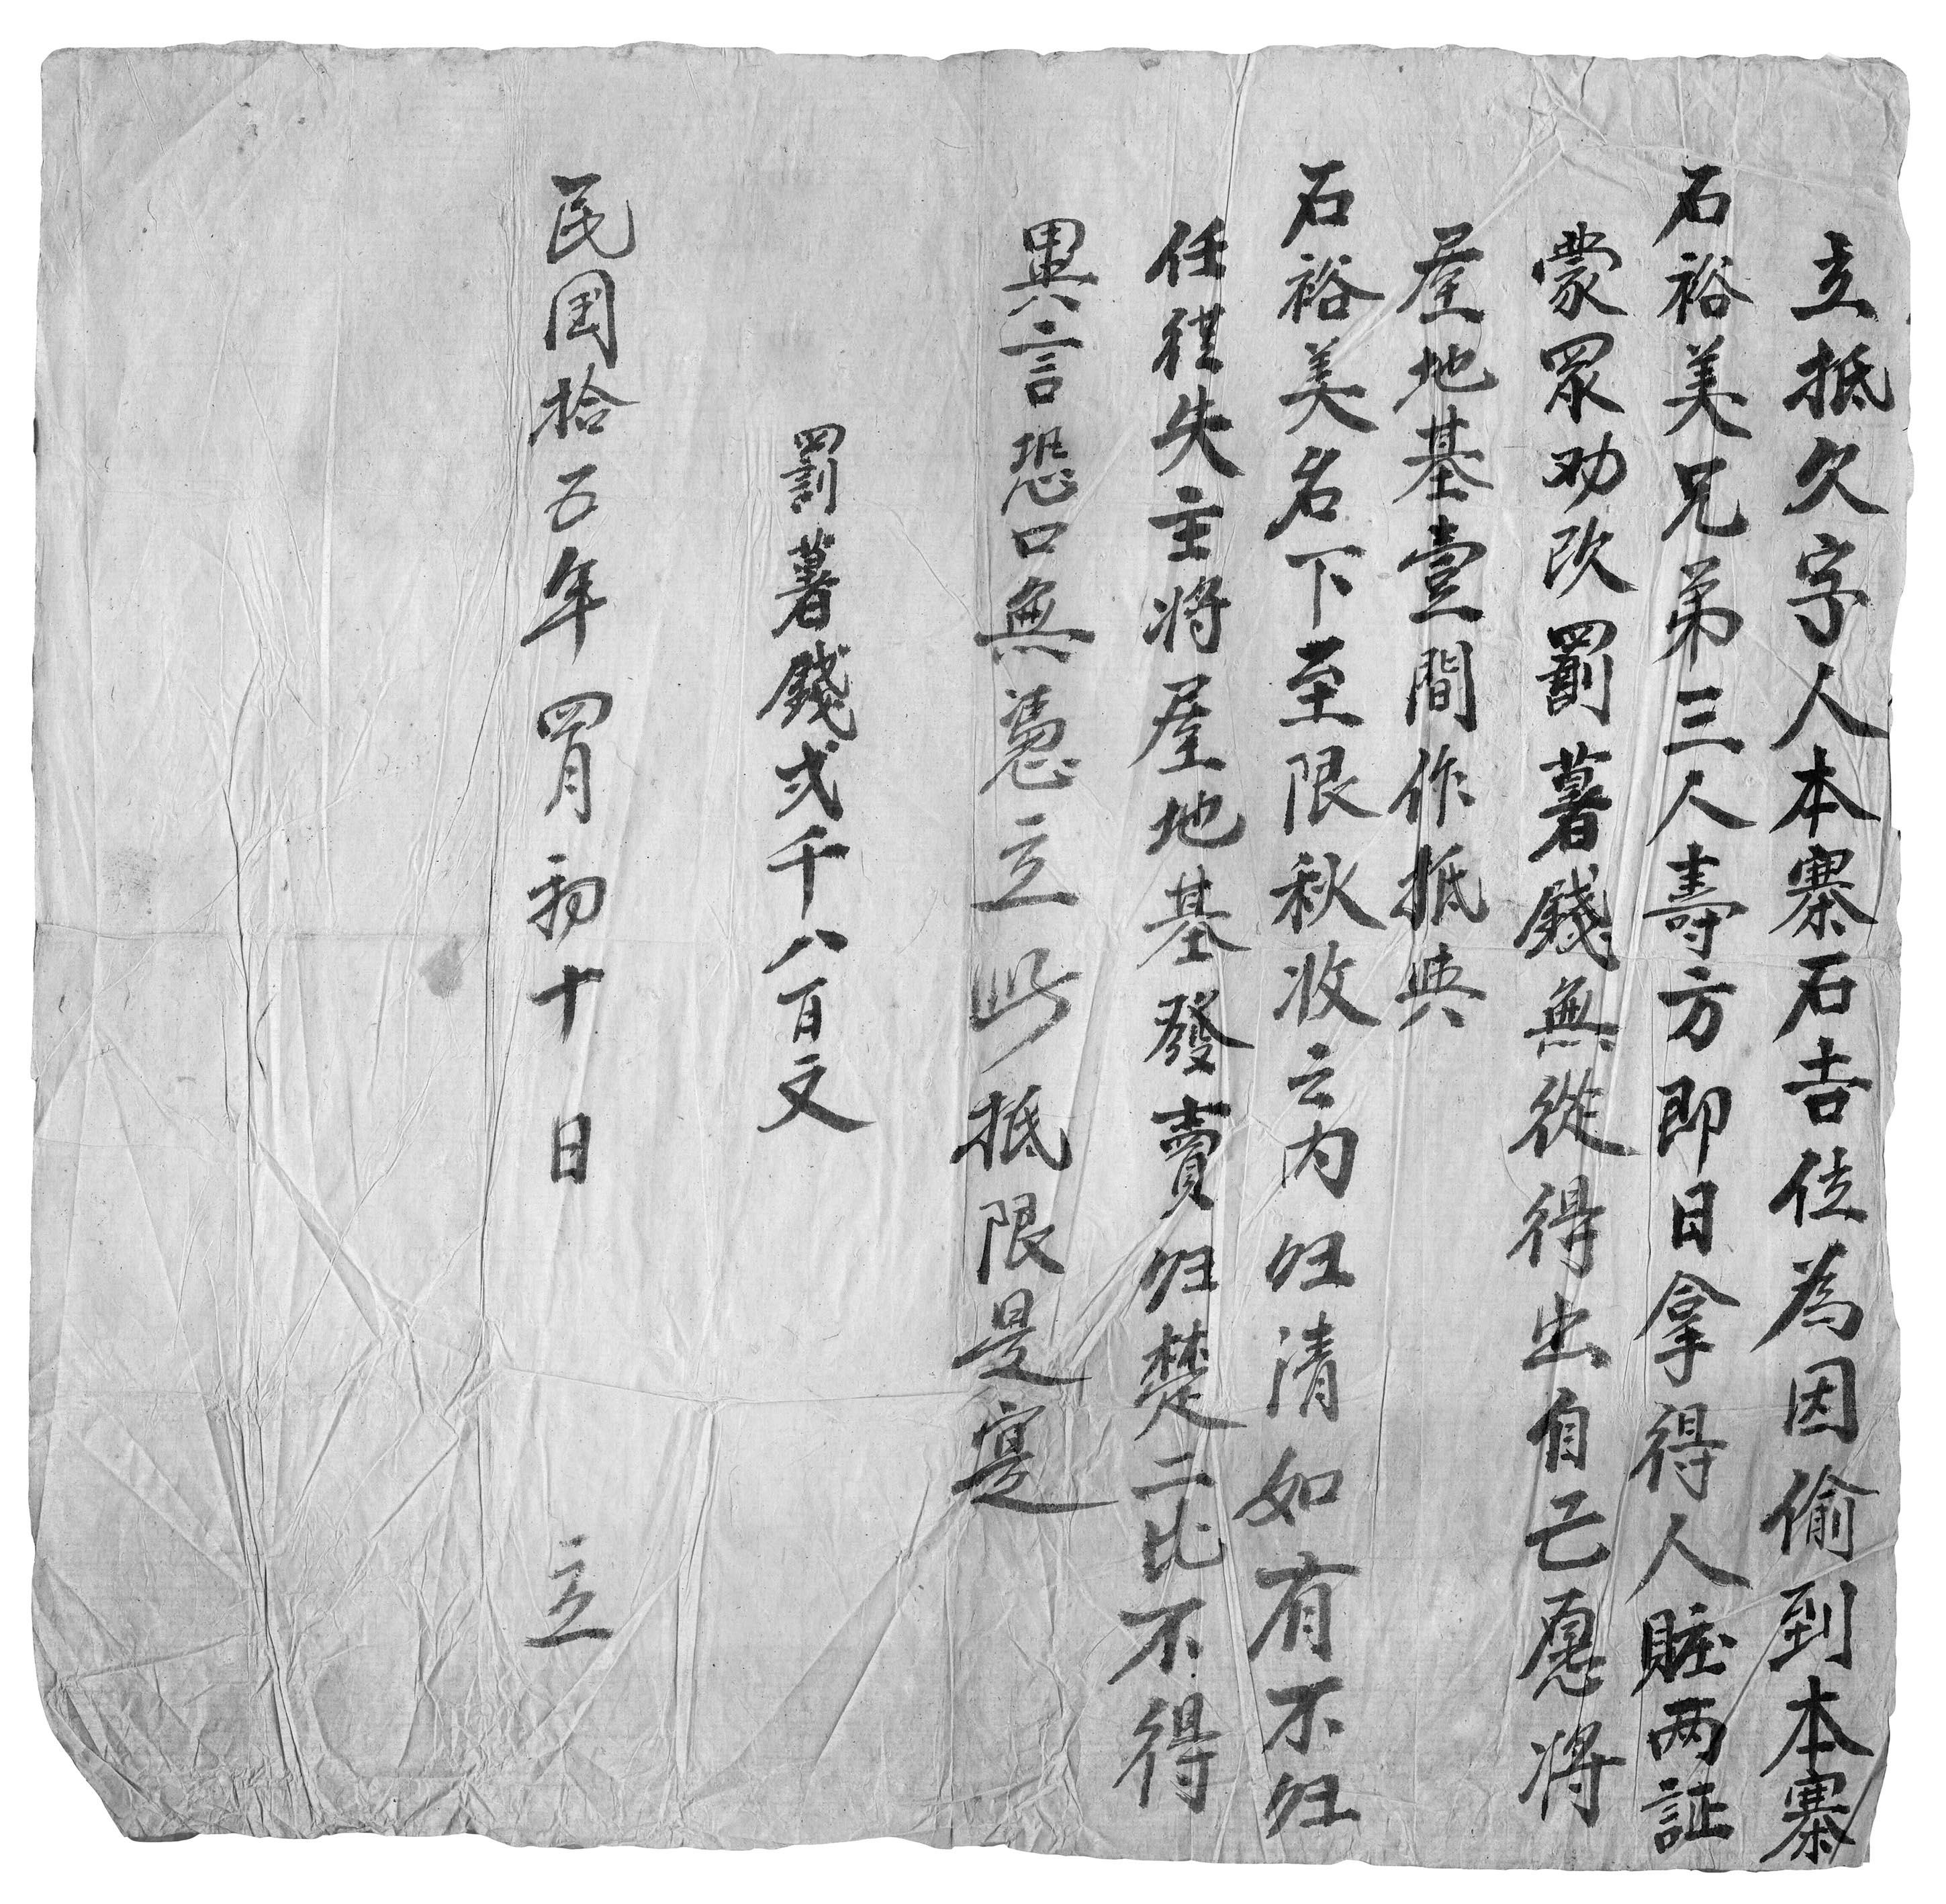 立抵欠字人本寨石吉位為因偷到本寨
石裕美兄弟三人壽方即日拿得人賍两証
蒙眾劝改罰薯錢無從得出自己愿将
屋地基壹間作抵典
石裕美名下至限秋收云内归清如有不归
任從失主将屋地基發賣归楚二比不得
異言恐口無憑立此抵限是寔
罰薯錢弍千八百文
民国拾五年四月初十日 立